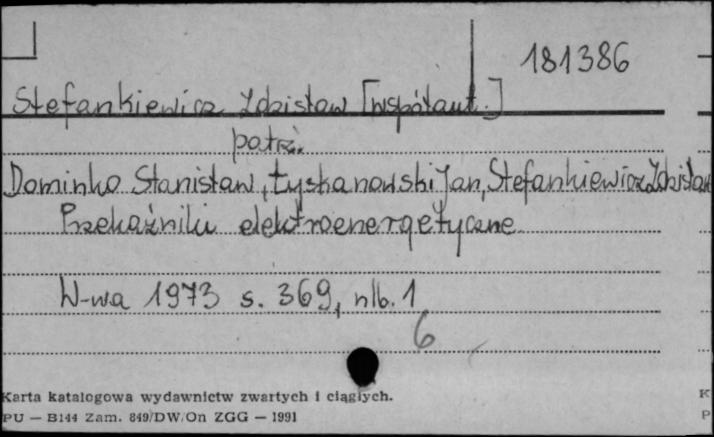 181386
Stefankiewicz Zdzisław [współaut.]
patrz.
Dominko Stanisław, Łyskanowski Jan, Stefankiewicz Zdzisław
Przekaźniki elektroenergetyczne
W-wa 1973 s. 369, nlb. 1
6
Karta katalogowa wydawnictw zwartych i ciągłych.
PU — B144 Zam. 849/DW/On ZGG — 1991
K
P